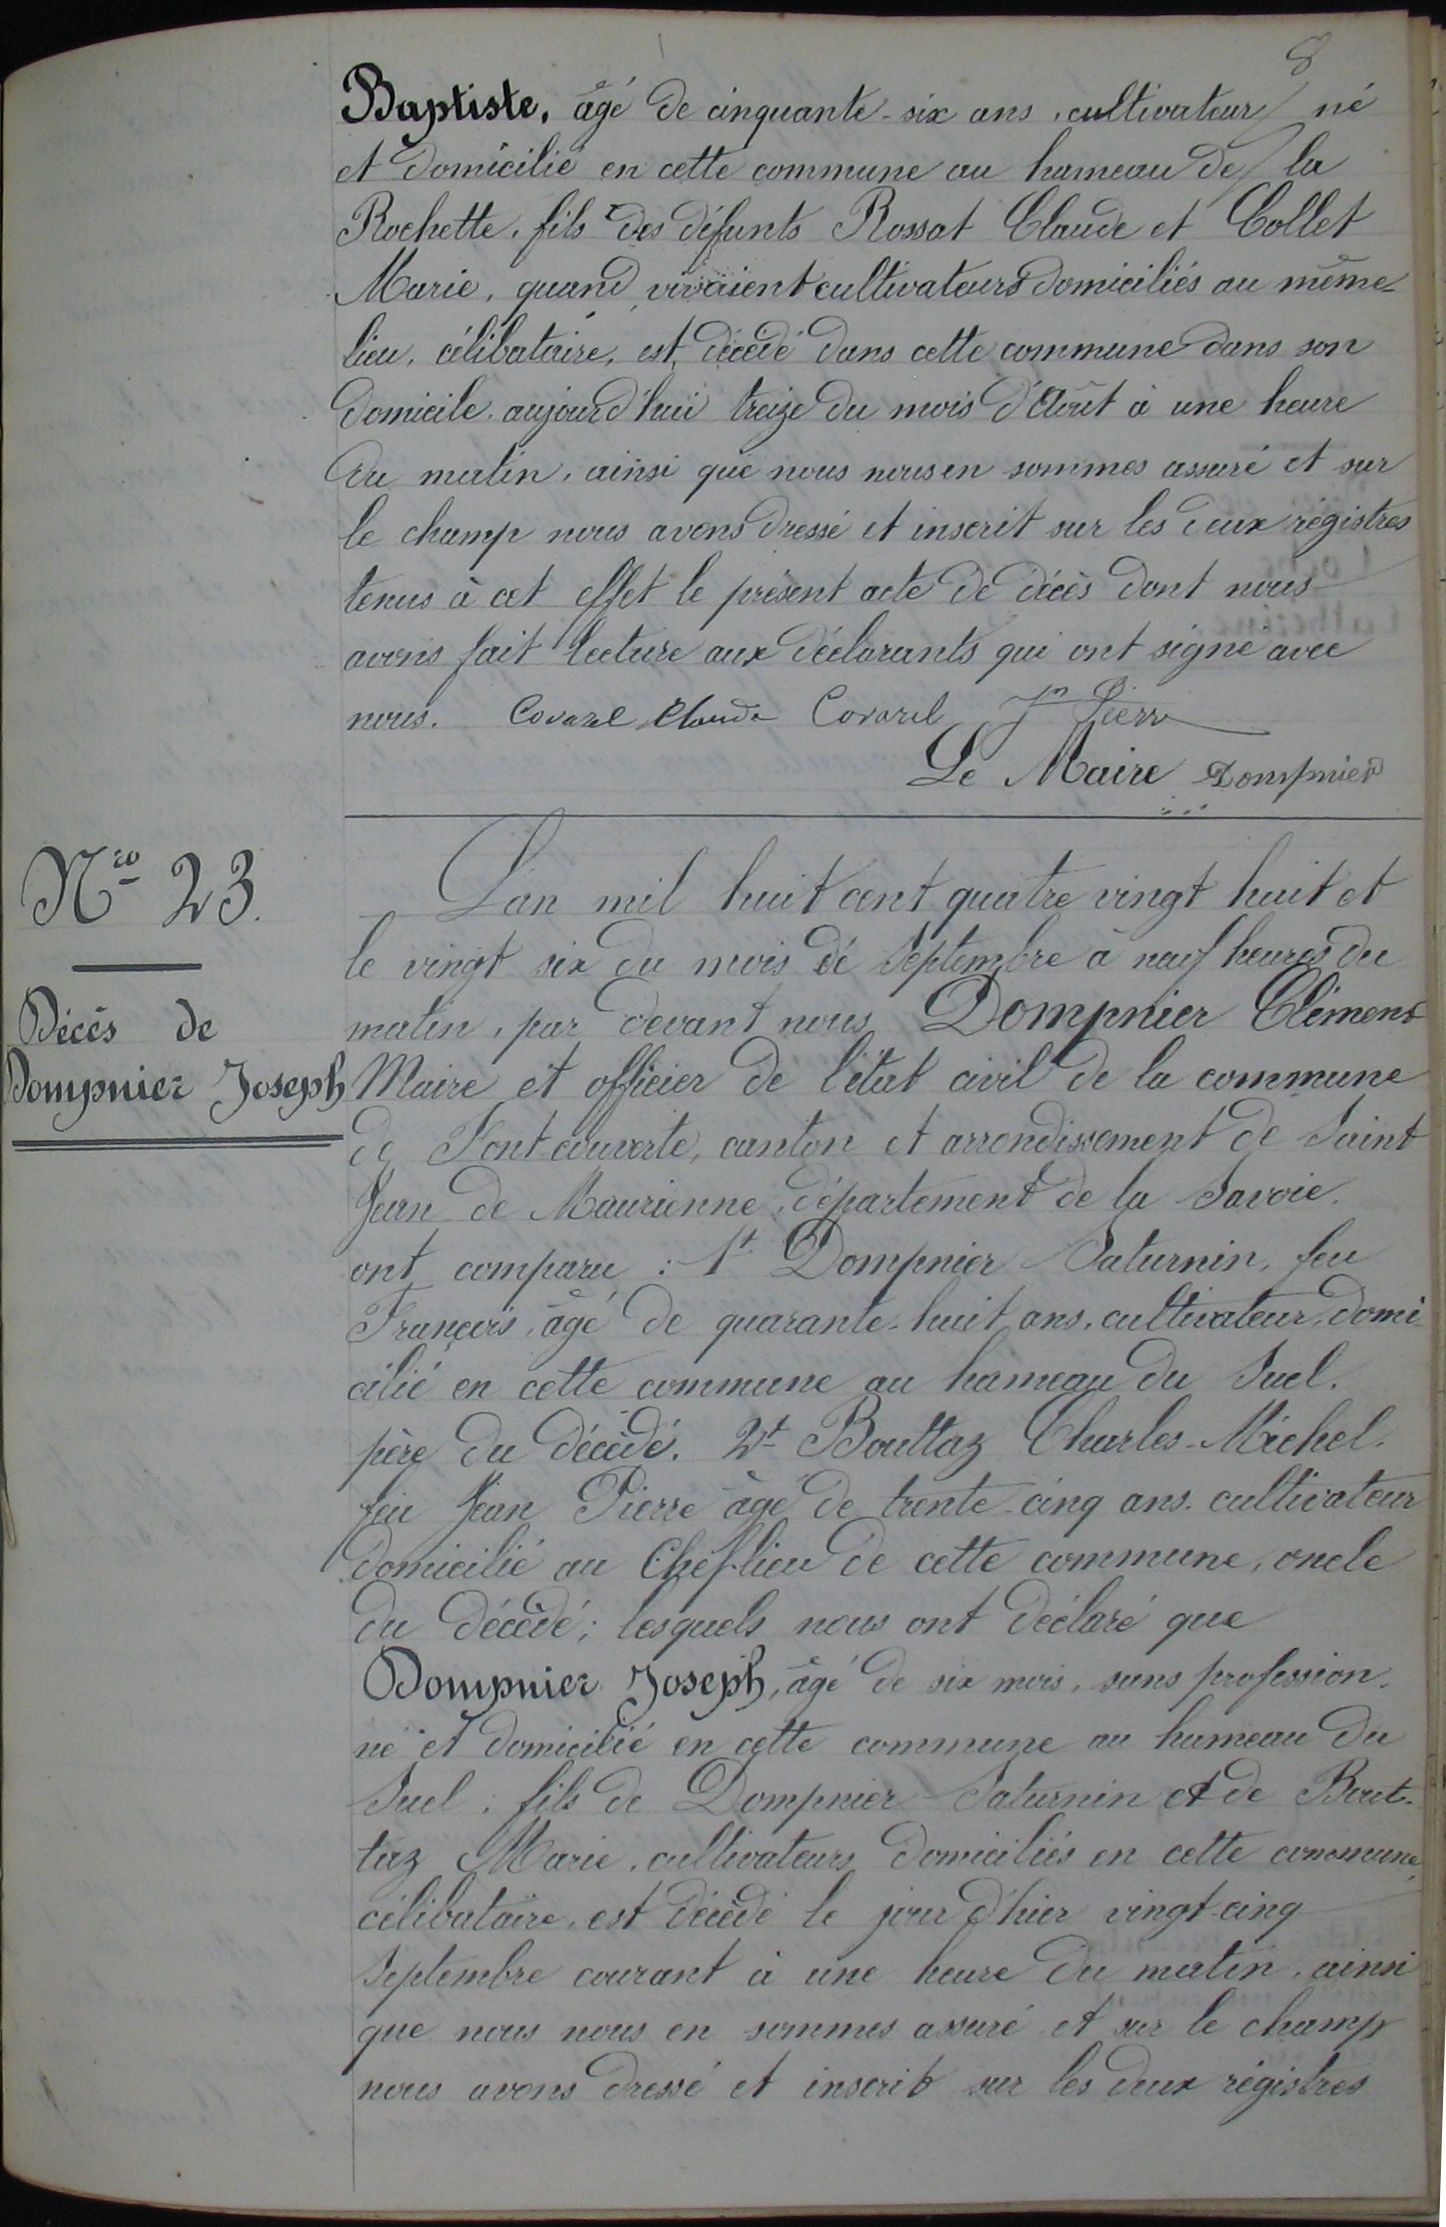 8
Baptiste, âgé de cinquante-six ans, cultivateur né
et domicilié en cette commune au hameau de la
Rochette, fils des défunts Rossat Claude et Collet
Marie, quand vivaient cultivateurs domiciliés au même
lieu, célibataire, est décédé dans cette commune dans son
domicile aujourd'hui treize du mois d'Août à une heure
du matin, ainsi que nous nous en sommes assuré et sur
le champ nous avons dressé et inscrit sur les deux régistres
tenus à cet effet le présent acte de décès dont nous
avons fait lecture aux déclarants qui ont signé avec
nous. Covarel Claude Covarel Jn Pierre
Le Maire Dompnier
Nro 23.
Décès de
Dompnier Joseph
L'an mil huit cent quatre vingt huit et
le vingt six du mois de Septembre à neuf heures du
matin, par devant nous Dompnier Clément
Maire et officier de l'état civil de la commune
de Fontcouverte, canton et arrondissement de Saint
Jean de Maurienne, département de la Savoie.
ont comparu : 1t Dompnier Saturnin, feu
François, âgé de quarante-huit ans, cultivateur, domi-
cilié en cette commune au hameau du Suel.
père du décédé. 2t Bouttaz Charles-Michel.
feu Jean Pierre âgé de trente-cinq ans. cultivateur
domicilié au Chef-lieu de cette commune, oncle
du décédé; lesquels nous ont déclaré que
Dompnier Joseph, âgé de six mois, sans profession,
né et domicilié en cette commune au hameau du
Suel, fils de Dompnier Saturnin et de Bout-
taz Marie, cultivateurs domiciliés en cette commune,
célibataire, est décédé le jour d'hier vingt-cinq
Septembre courant à une heure du matin, ainsi
que nous nous en sommes assuré et sur le champ
nous avons dressé et inscrit sur les deux régistres